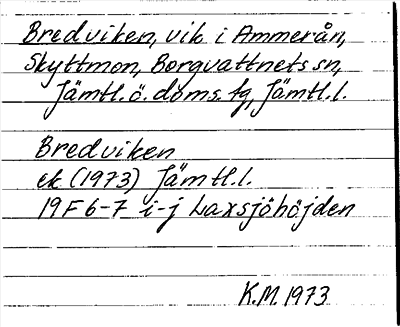 Bredviken, vik i Ammerån,
Skyttmon, Borgvattnets sn,
Jämtl. ö. doms. fg, Jämtl. l.
Bredviken
ek (1973) Jämtl. l.
19F 6-7 i-j Laxsjöhöjden
K.M. 1973